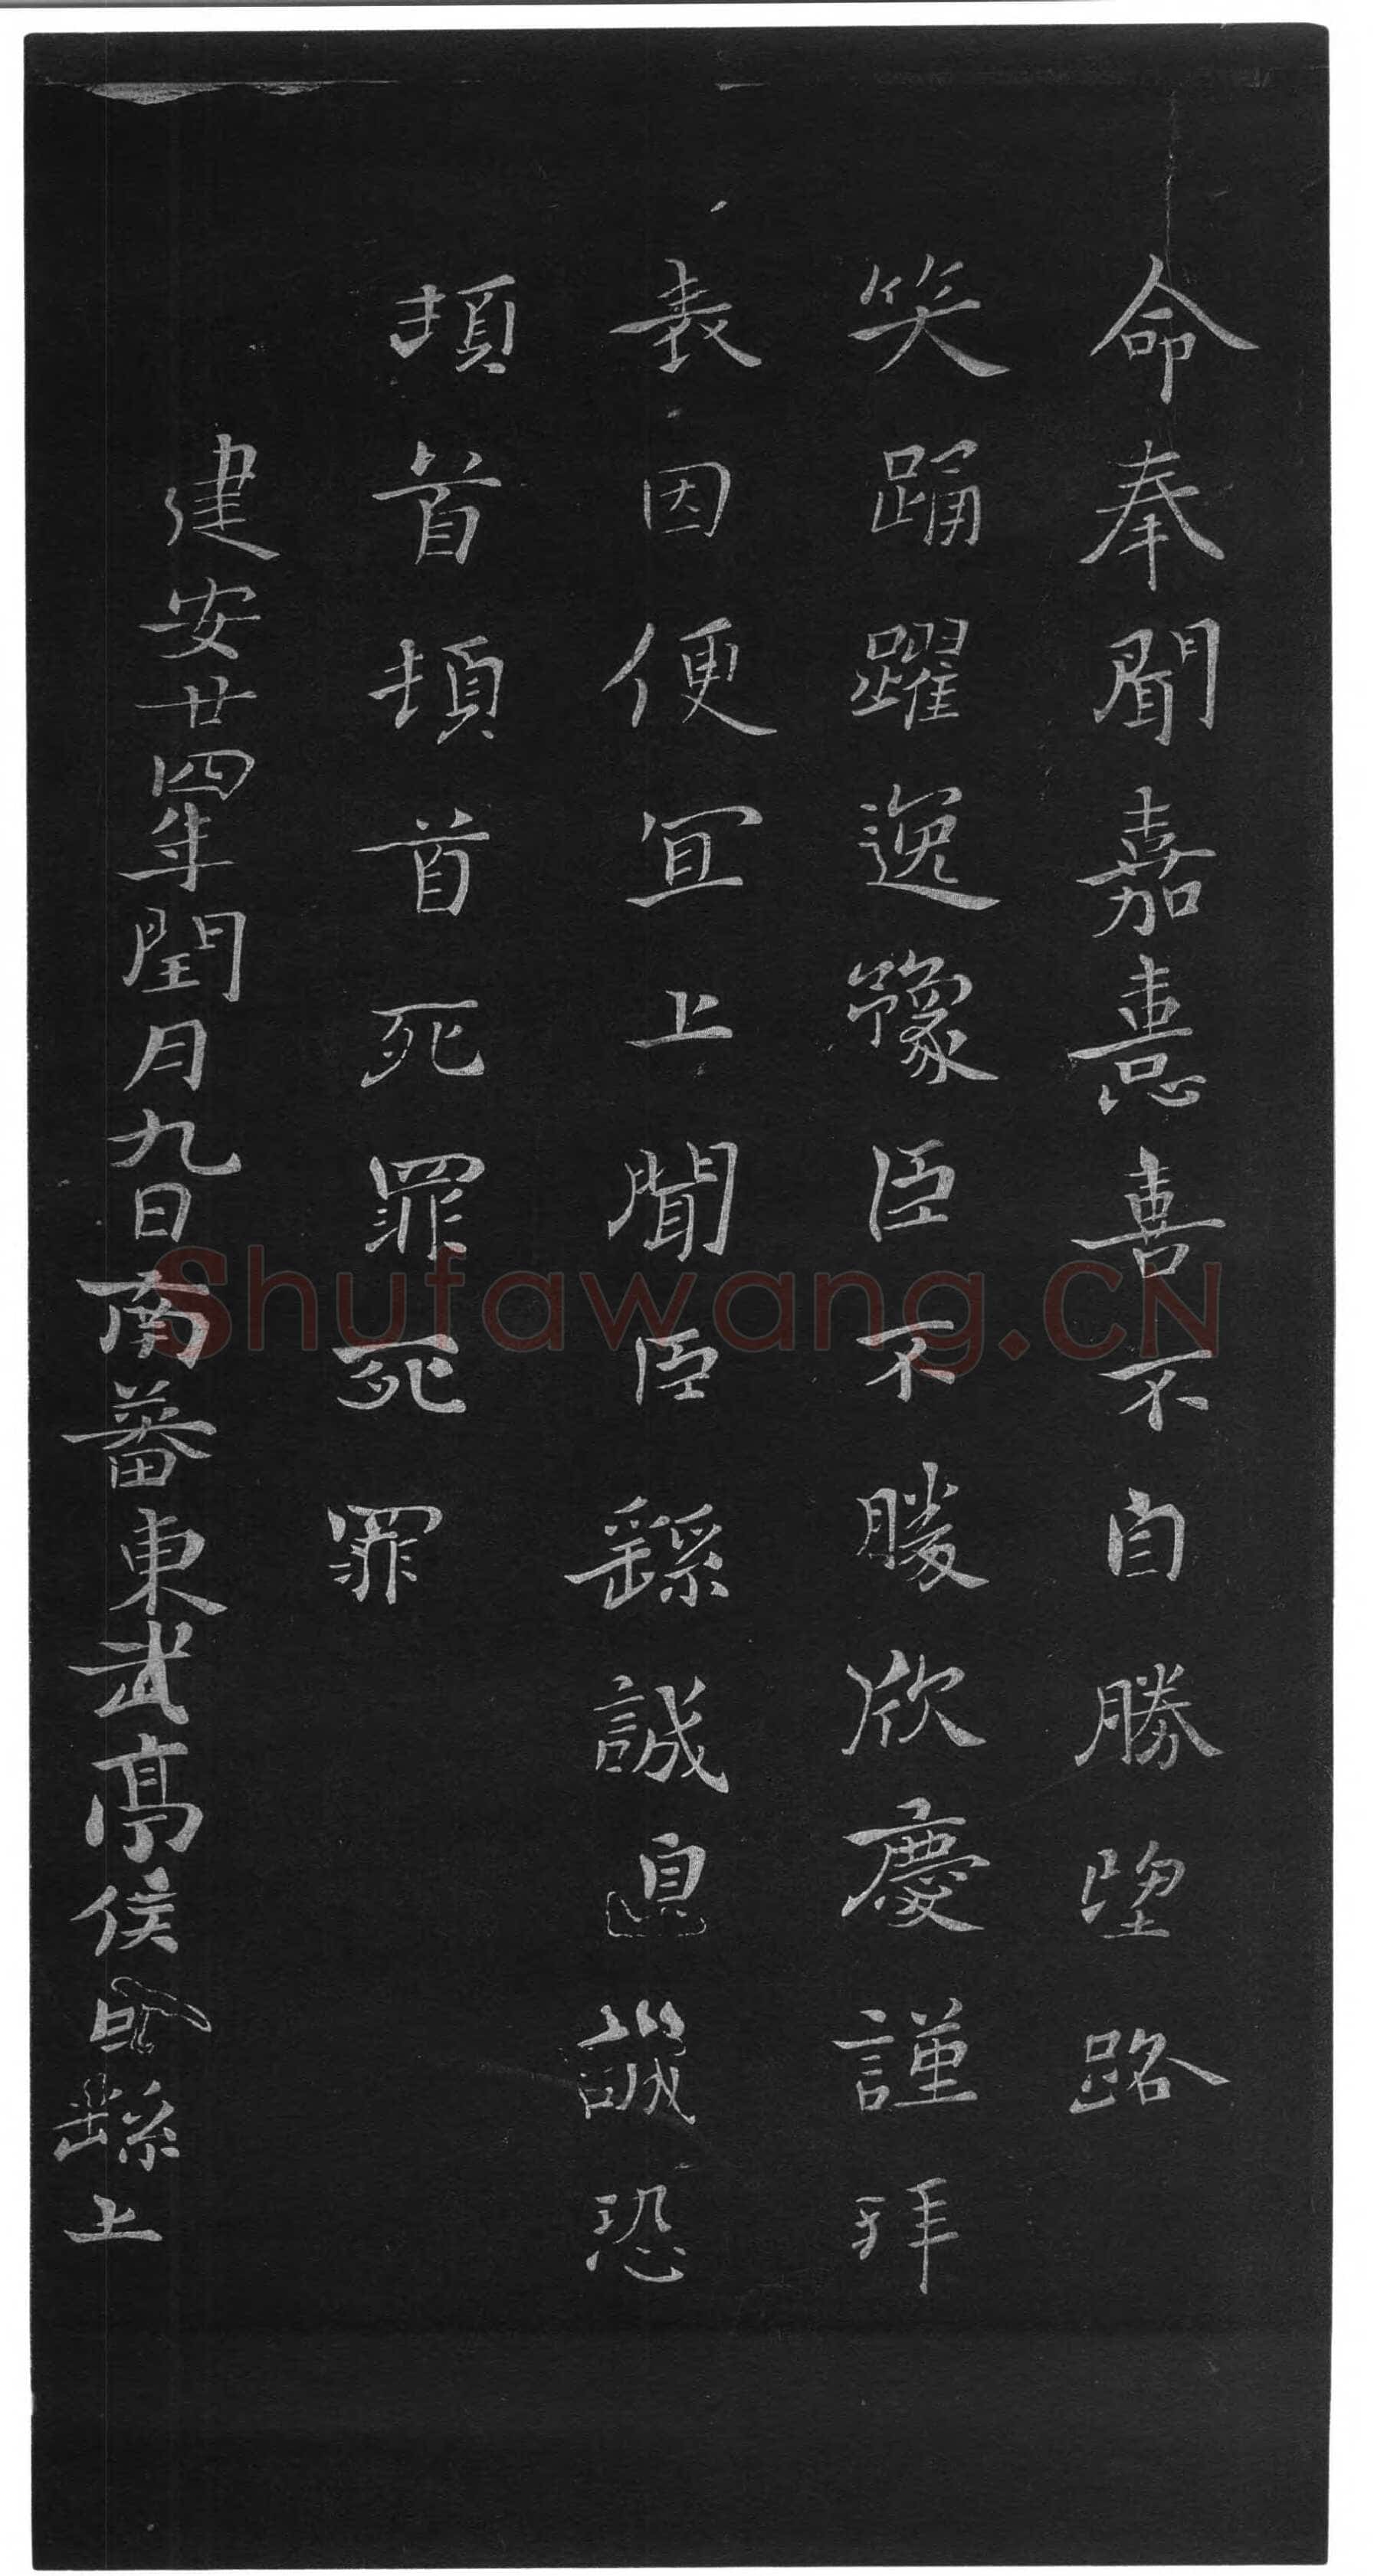 命奉聞嘉憙喜不自勝望路
笑踊躍逸豫臣不勝欣慶謹拜
表因便宜上聞臣繇誠惶誠恐
頓首頓首死罪死罪
建安廿四年閏月九日南蕃東武亭侯臣繇上
Shufawang.CN